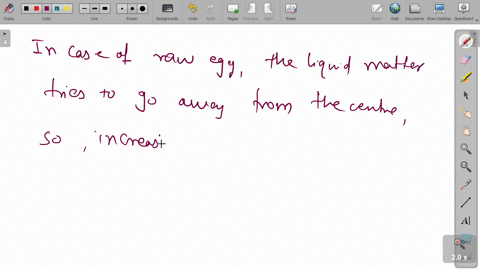 Stylus
Color
Line
Eraser
Backgrounds
Undo
Redo
Pages
Previous
Next
Erase
Board
Web
Documents
Show Desktop
OpenBoard
In case of raw egg, the liquid matter
tries to go away from the centre,
so, increasi
2.0 x